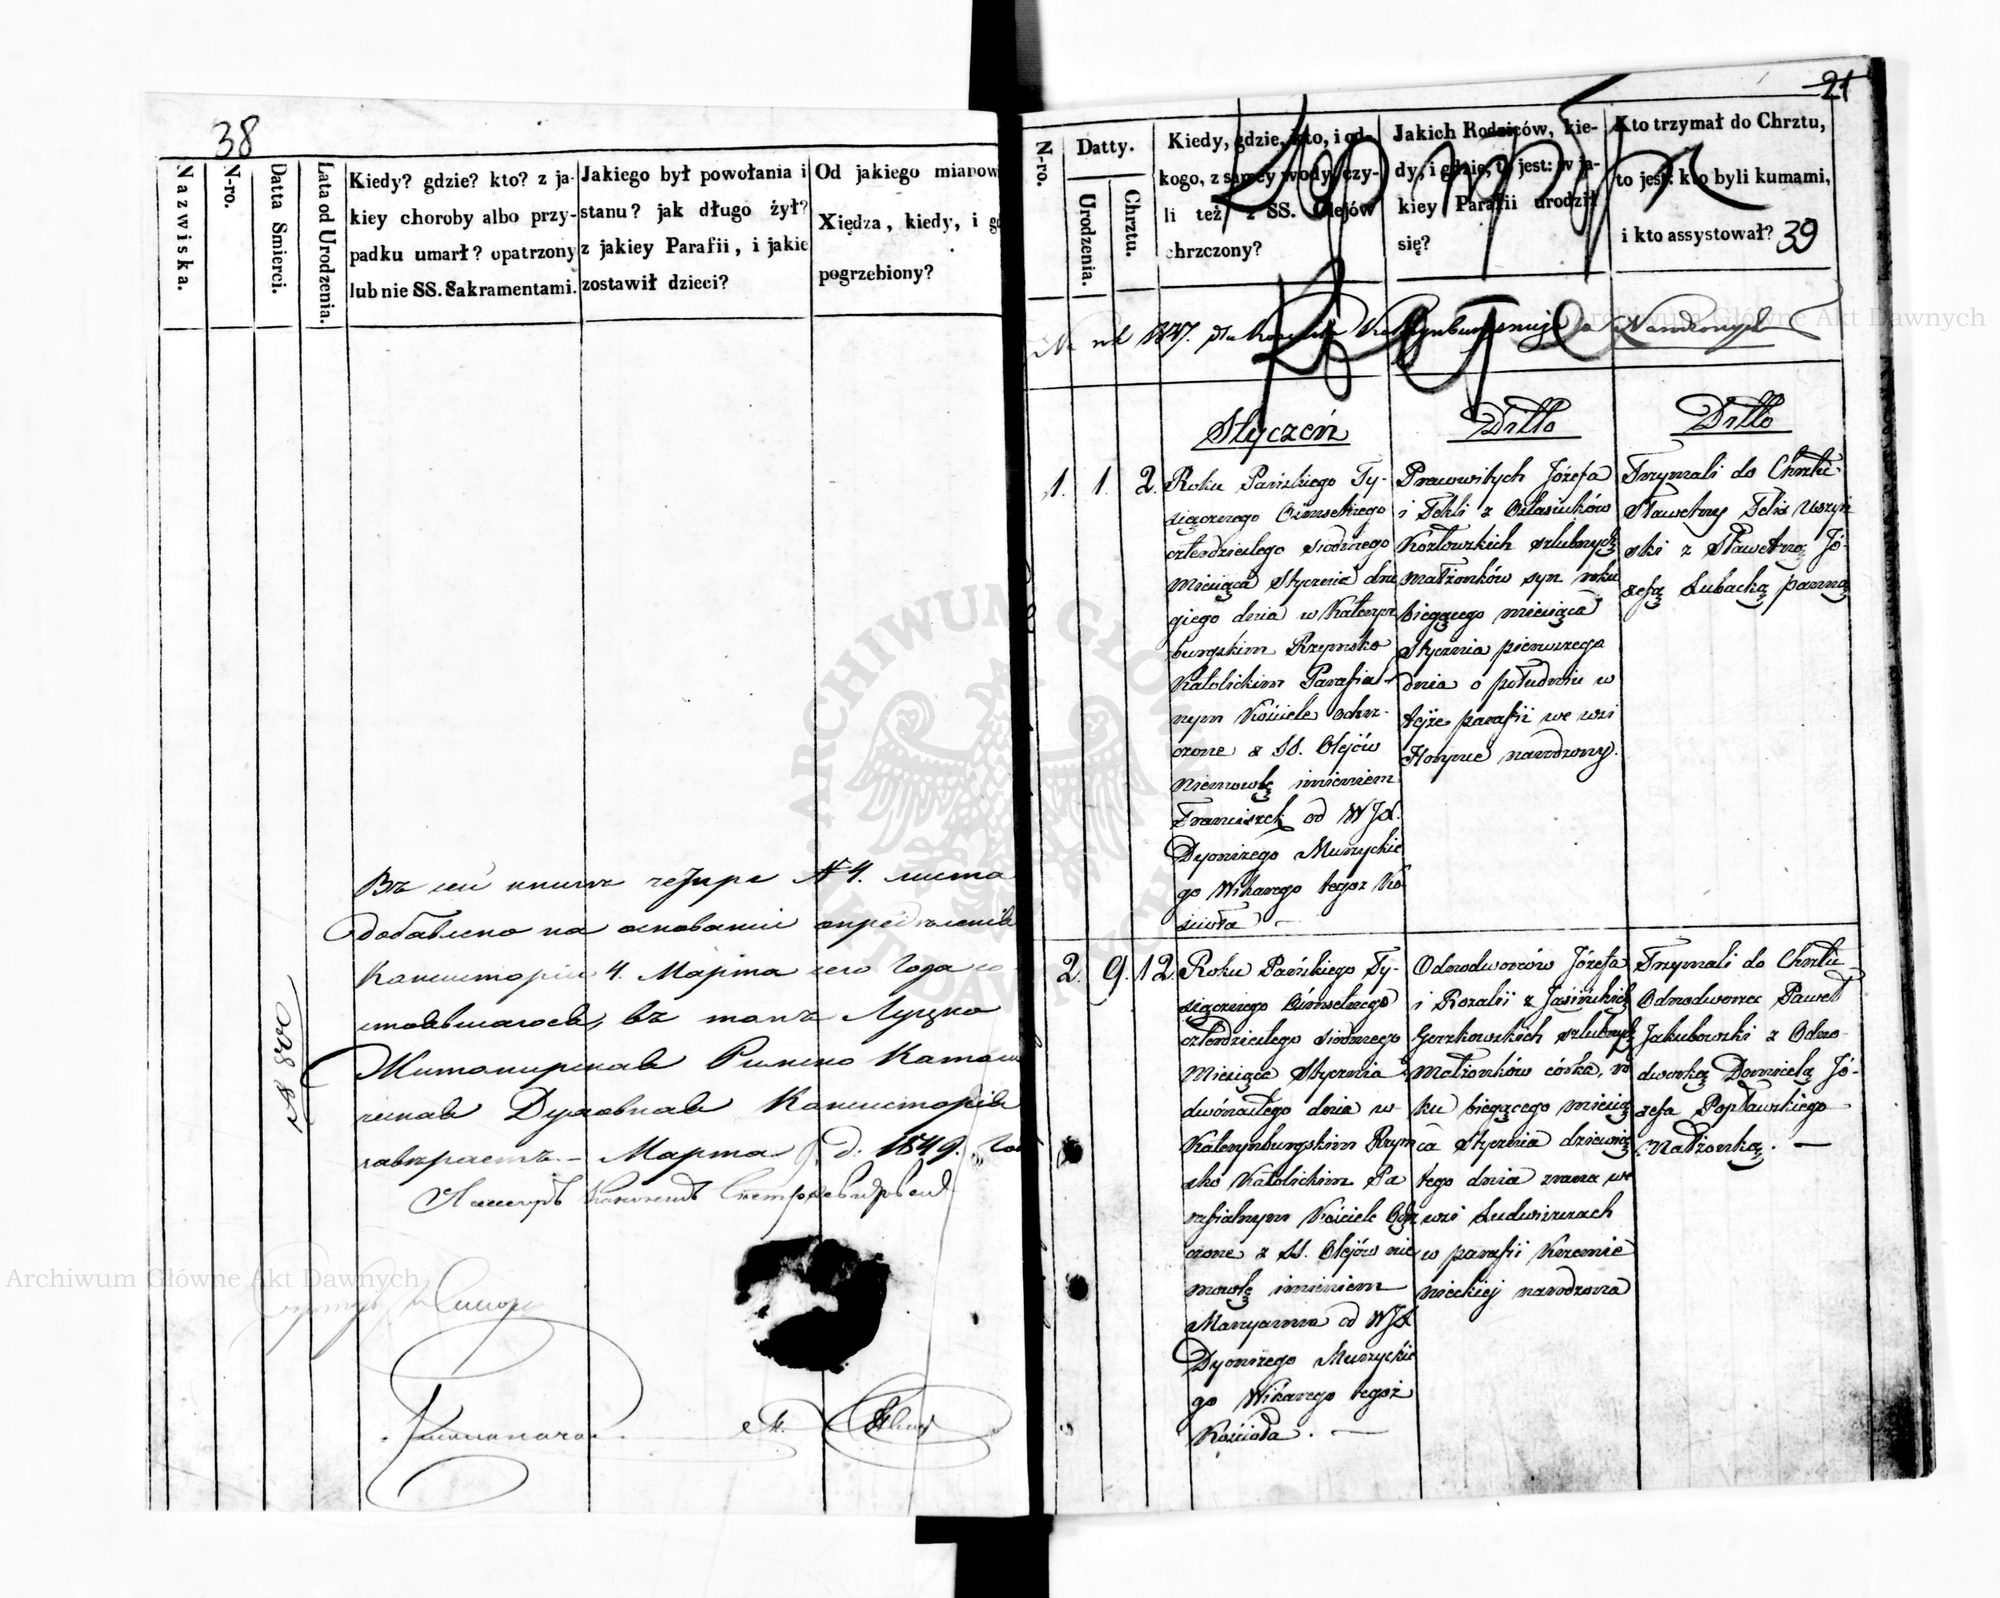 38
Nazwiska.
N-ro.
Datta Smierci.
Lata od Urodzenia.
Kiedy? gdzie? kto? z ja-
kiey choroby albo przy-
padku umarł? opatrzony
lub nie SS. Sakramentami.
Jakiego był powołania i
stanu? jak długo żył?
z jakiey Parafii, i jakie
zostawił dzieci?
Od jakiego mianow
Xiędza, kiedy, i g
pogrzebiony?
Въ сей книгѣ четыре № 4. листа
добавлено на основаніи опредѣленія
Консисторіи 4. Марта сего года со
стоявшагося, въ томъ Луцко
Житомирская Римско Катол
ческая Духовная Консисторія
завѣряетъ. – Марта 9. д. 1849. го
№ 800
21
N-ro.
Datty.
Urodzenia.
Chrztu.
Kiedy, gdzie, kto, i od
kogo, z samey wody, czy-
li też z SS. Olejów
chrzczony?
Jakich Rodziców, kie-
dy, i gdzie, to jest: w ja-
kiey Parafii urodził
się?
Kto trzymał do Chrztu,
to jest: kto byli kumami,
i kto assystował? 39
Kopija
Na rok 1847. dla Kościoła Narodzonych
Styczeń
Ditto
Ditto
1. 1. 2.
Roku Pańskiego Ty-
siącznego Ośmsetnego
czterdziestego siódmego
Miesiąca Stycznia dru
giego dnia w Kateryn
burgskim Rzymsko
Katolickim Parafial-
nym Kościele ochrz-
czone z SS. Olejów
Niemowlę imieniem
Franciszek od WJX.
Dyonizego Murzyckie
go Wikarego tegoż Ko
ścioła –
Prawowitych Józefa
i Tekli z Ostasiuków
Kozłowskich szlubnych
małżonków syn roku
bieżącego miesiąca
Stycznia pierwszego
dnia o południu w
tejże parafii we wsi
Horynce narodzony.
Trzymali do Chrztu
Sławetny Felix Uszyń
ski z Sławetną Jó-
zefą Lubacką panną
2. 9. 12.
Roku Pańskiego Ty-
siącznego Ośmsetnego
czterdziestego siódmego
Miesiąca Stycznia
dwónastego dnia w
Katerynburgskim Rzym
sko Katolickim Pa
rafialnym Kościele Ochrz
czone z SS. Olejów nie
mowlę imieniem
Maryanna od WJX
Dyonizego Murzyckie
go Wikarego tegoż
Kościoła. –
Odnodworców Józefa
i Rozalii z Jasińskich
Gorzkowskich szlubnych
Małżonków córka, ro
ku bieżącego miesią
ca Stycznia dziewią
tego dnia zrana we
wsi Ludwiszczach
w parafii Krzemie
nieckiej narodzona
Trzymali do Chrztu
Odnodworzec Paweł
Jakubowski z Odno-
dworką Domicelą Jó-
zefa Popławskiego
Małżonką. –
ARCHIWUM GŁÓWNE AKT DAWNYCH
Archiwum Główne Akt Dawnych
Archiwum Główne Akt Dawnych